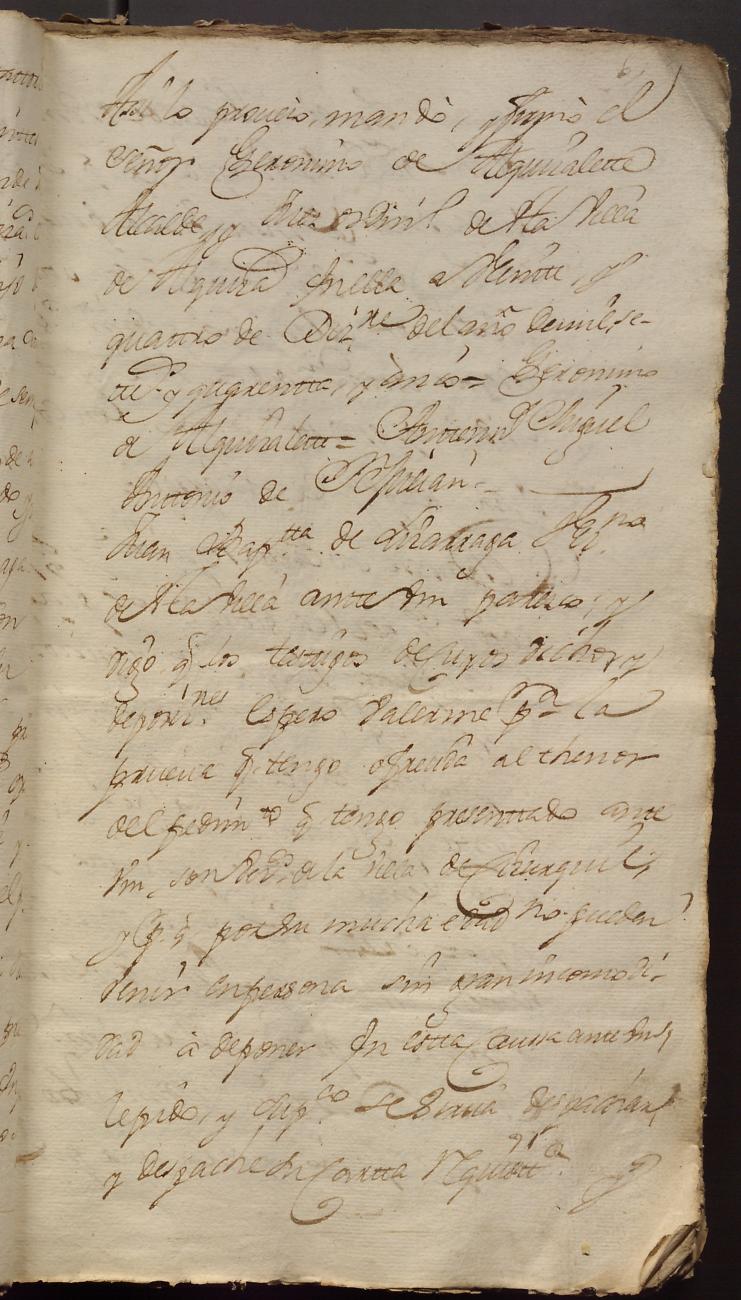 Assi lo proveió, mandò, y firmò el
señor Geronimo de Alquiralette
Alcalde, y Juez ordin.º de esta villa
de en ella a Veintte, y
quattro de Diz.re del año de mil, se-
tte.os y quarentta, y cinco = Geronimo
de Alquiralette = Antemi Miguel
Anttonio de
Juan Bap.tta de Lizarraga Vez.no
de esta villa ante Vm parezco, y
digo, q los testigos de cuyos dichos, y
deposi.nes espero valerme p.a la
prueva q. tengo ofrecida al thenor
del pedim.to q tengo presenttado ante
Vm, son vez.os de la villa de
y p.r q. por su mucha edad no pueden
venir en persona sin gran incomodi-
dad à deponer en esta Caussa ante Vm,
le pido, y sup.co se sirva despachar,
y despache su Cartta Requisitt.a y